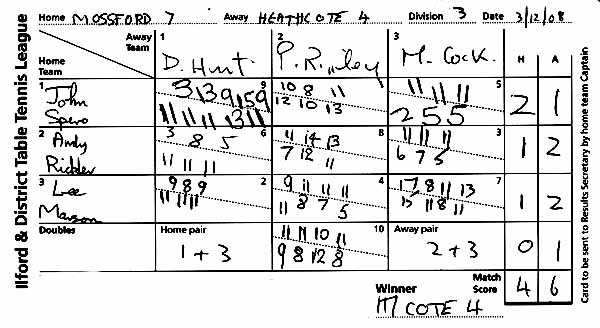 Home MOSSFORD 7 Away HEATHCOTE 4 Division 3 Date 3/12/08
Ilford & District Table Tennis League
Away Team
Home Team
1 D. Hunt
2 P. Riley
3 M. Cock.
H A
1 John Spero
9 3,13 9,15 9
11 11 11 13 11
10 8 11
12 10 13
5 11 11 11
2 5 5
2 1
2 Andy Rickler
6 3 8 5
11 11 11
8 11 14 13
7 12 11
3 11 11 11
6 7 5
1 2
3 Lee
2 9 8 9
11 11 11
4 9 11 11 11
11 8 7 5
7 17 8 11 13
15 11 8 11
1 2
Doubles
Home pair
1 + 3
10 11 11 10 11
9 8 12 8
Away pair
2 + 3
0 1
Winner
Match Score
4 6
COTE 4
Card to be sent to Results Secretary by home team Captain